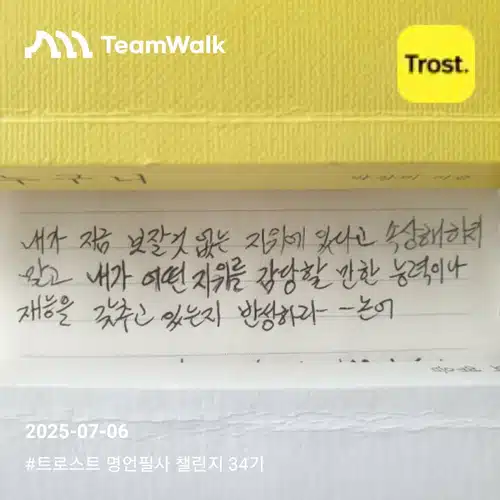 TeamWalk
Trost.
누구나
내가 지금 보잘것 없는 지위에 있다고 속상해하려
말고 내가 어떤 지위를 감당할 만한 능력이나
재능을 갖추고 있는지 반성하라- -논어
2025-07-06
#트로스트 명언필사 챌린지 34기